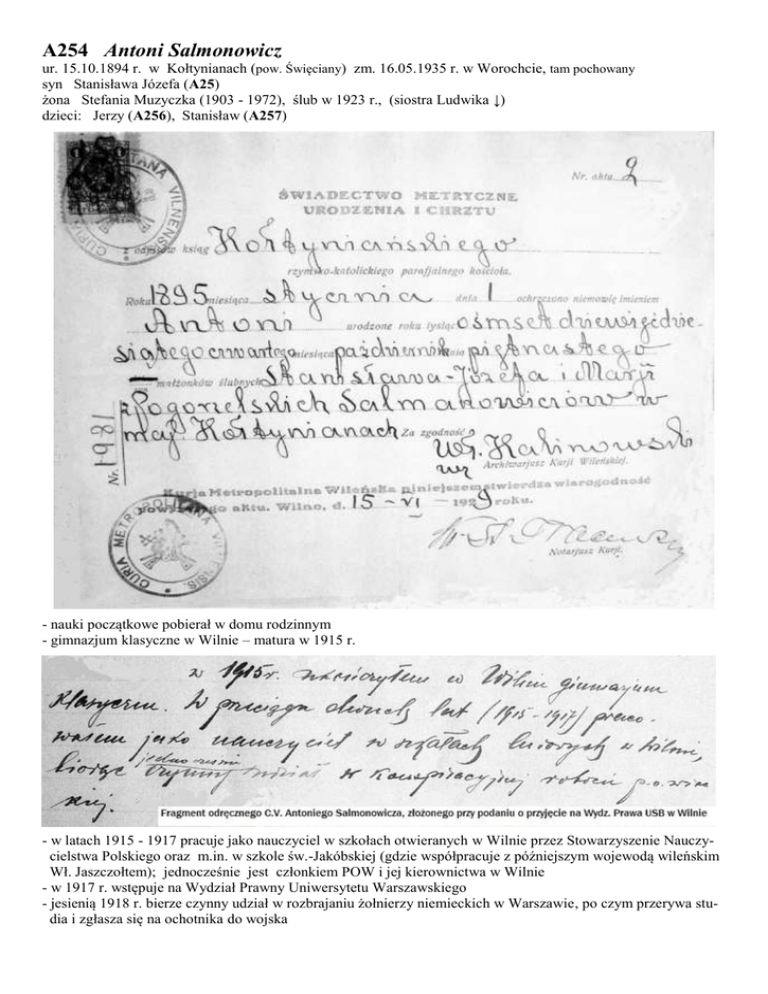 A254 Antoni Salmonowicz
ur. 15.10.1894 r. w Kołtynianach (pow. Święciany) zm. 16.05.1935 r. w Worochcie, tam pochowany
syn Stanisława Józefa (A25)
żona Stefania Muzyczka (1903 - 1972), ślub w 1923 r., (siostra Ludwika ↓)
dzieci: Jerzy (A256), Stanisław (A257)
Nr. aktu 2
ŚWIADECTWO METRYCZNE
URODZENIA I CHRZTU
z odpisów ksiąg Kołtyniańskiego
rzymsko-katolickiego parafjalnego kościoła.
Roku 1895 miesiąca stycznia dnia 1 ochrzczono niemowlę imieniem
Antoni urodzone roku tysiąc ośmset dziewięćdzie-
siątego czwartego miesiąca października dnia piętnastego
małżonków ślubnych Stanisława-Józefa i Marji
z Pogorzelskich Salmanowiczów w
maj. Kołtynianach Za zgodność
Wł. Kalinowski
wz Archiwarjusz Kurji Wileńskiej.
Nr. 1981
Kurja Metropolitalna Wileńska niniejszem stwierdza wiarogodność
powyższego aktu. Wilno, d. 15 - VI - 1929 roku.
Notarjusz Kurji.
CURIA METROPOLITANA VILNENSIS
- nauki początkowe pobierał w domu rodzinnym
- gimnazjum klasyczne w Wilnie – matura w 1915 r.
w 1915 r. ukończyłem w Wilnie gimnazjum
klasyczne. W przeciągu dwuch lat (1915-1917) praco-
wałem jako nauczyciel w szkołach w Wilnie,
jednocześnie
biorąc czynny udział w konspiracyjnej robocie
Fragment odręcznego C.V. Antoniego Salmonowicza, złożonego przy podaniu o przyjęcie na Wydz. Prawa USB w Wilnie
- w latach 1915 - 1917 pracuje jako nauczyciel w szkołach otwieranych w Wilnie przez Stowarzyszenie Nauczy-
cielstwa Polskiego oraz m.in. w szkole św.-Jakóbskiej (gdzie współpracuje z późniejszym wojewodą wileńskim
Wł. Jaszczołtem); jednocześnie jest członkiem POW i jej kierownictwa w Wilnie
- w 1917 r. wstępuje na Wydział Prawny Uniwersytetu Warszawskiego
- jesienią 1918 r. bierze czynny udział w rozbrajaniu żołnierzy niemieckich w Warszawie, po czym przerywa stu-
dia i zgłasza się na ochotnika do wojska